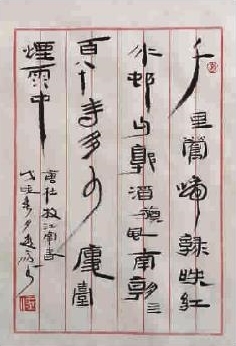 千里鶯啼綠映紅
水邨山郭酒旗風南朝
百八十寺多少樓臺
煙雨中
唐杜牧江南春